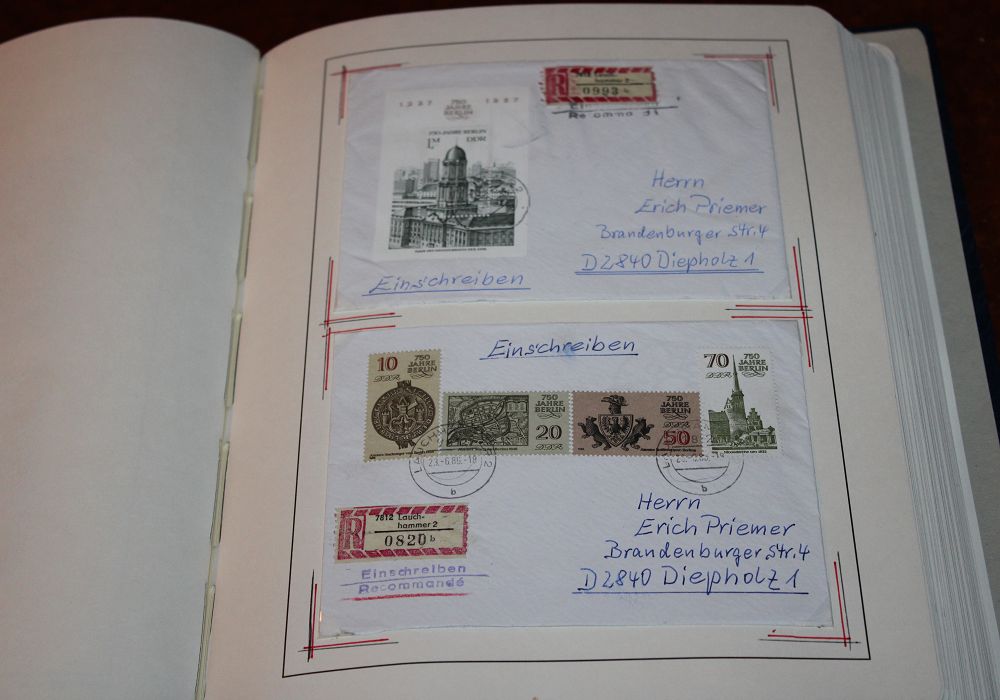 1237 750 1987
JAHRE
BERLIN
750 JAHRE BERLIN
1M DDR
7812 Lauch-
hammer 2
0993
Recommandé
Herrn
Erich Priemer
Brandenburger Str. 4
D 2840 Diepholz 1
Einschreiben
Einschreiben
10 750
JAHRE
BERLIN
DDR
750
JAHRE
BERLIN
20 DDR
750
JAHRE
BERLIN
DDR
50
70 750
JAHRE
BERLIN
DDR
23.-6.86.-18
b
b
R 7812 Lauch-
hammer 2
0820 b
Einschreiben
Recommandé
Herrn
Erich Priemer
Brandenburger Str. 4
D 2840 Diepholz 1